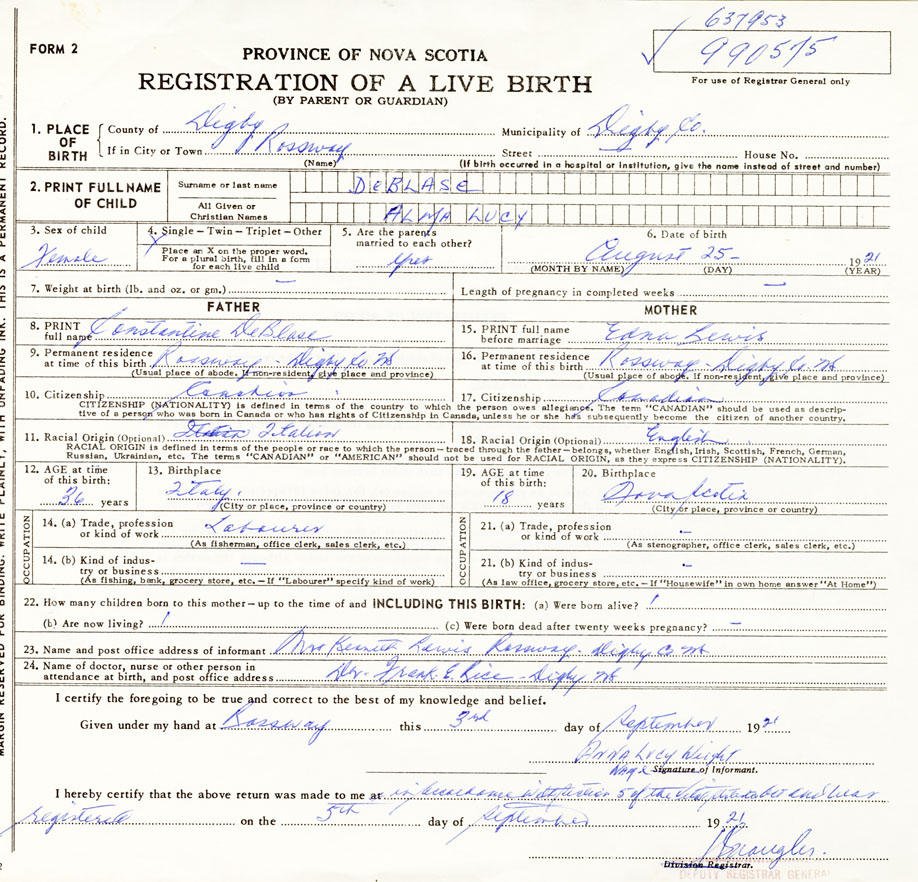 637953
FORM 2
990515
PROVINCE OF NOVA SCOTIA
REGISTRATION OF A LIVE BIRTH
For use of Registrar General only
(BY PARENT OR GUARDIAN)
1. PLACE OF BIRTH
County of Digby Municipality of Digby Co.
If in City or Town Rossway Street House No.
(Name) (If birth occurred in a hospital or institution, give the name instead of street and number)
2. PRINT FULL NAME OF CHILD
Surname or last name DeBLASE
All Given or Christian Names ALMA LUCY
3. Sex of child Female
4. Single – Twin – Triplet – Other X
Place an X on the proper word. For a plural birth, fill in a form for each live child
5. Are the parents married to each other? yes
6. Date of birth August 25 – 1921
(MONTH BY NAME) (DAY) (YEAR)
7. Weight at birth (lb. and oz. or gm.) — Length of pregnancy in completed weeks —
FATHER
8. PRINT full name Constantine DeBlase
9. Permanent residence at time of this birth Rossway - Digby Co. NS
(Usual place of abode. If non-resident, give place and province)
10. Citizenship
MOTHER
15. PRINT full name before marriage Edna Lewis
16. Permanent residence at time of this birth Rossway Digby Co. NS
(Usual place of abode. If non-resident, give place and province)
17. Citizenship Canadian
CITIZENSHIP (NATIONALITY) is defined in terms of the country to which the person owes allegiance. The term "CANADIAN" should be used as descrip-
tive of a person who was born in Canada or who has rights of Citizenship in Canada, unless he or she has subsequently become the citizen of another country.
11. Racial Origin (Optional) Italian 18. Racial Origin (Optional) English
RACIAL ORIGIN is defined in terms of the people or race to which the person – traced through the father – belongs, whether English, Irish, Scottish, French, German,
Russian, Ukrainian, etc. The terms "CANADIAN" or "AMERICAN" should not be used for RACIAL ORIGIN, as they express CITIZENSHIP (NATIONALITY).
12. AGE at time of this birth: 36 years
13. Birthplace Italy.
(City or place, province or country)
19. AGE at time of this birth: 18 years
20. Birthplace Nova Scotia
(City or place, province or country)
OCCUPATION
14. (a) Trade, profession or kind of work Labourer
(As fisherman, office clerk, sales clerk, etc.)
14. (b) Kind of indus-
try or business —
(As fishing, bank, grocery store, etc. – If "Labourer" specify kind of work)
OCCUPATION
21. (a) Trade, profession or kind of work –
(As stenographer, office clerk, sales clerk, etc.)
21. (b) Kind of indus-
try or business –
(As law office, grocery store, etc. – If "Housewife" in own home answer "At Home")
22. How many children born to this mother – up to the time of and INCLUDING THIS BIRTH: (a) Were born alive? 1
(b) Are now living? 1 (c) Were born dead after twenty weeks pregnancy? –
23. Name and post office address of informant Mrs Kenneth Lewis Rossway - Digby Co. NS
24. Name of doctor, nurse or other person in
attendance at birth, and post office address Dr. Frank E Rice - Digby NS
I certify the foregoing to be true and correct to the best of my knowledge and belief.
Given under my hand at Rossway this 3rd day of September 1921
Anna Lucy Wright
Signature of Informant.
I hereby certify that the above return was made to me at in accordance with section 5 of the
registered on the 5th day of September 1921
Division Registrar.
DEPUTY REGISTRAR GENERAL
MARGIN RESERVED FOR BINDING. WRITE PLAINLY, WITH UNFADING INK. THIS IS A PERMANENT RECORD.